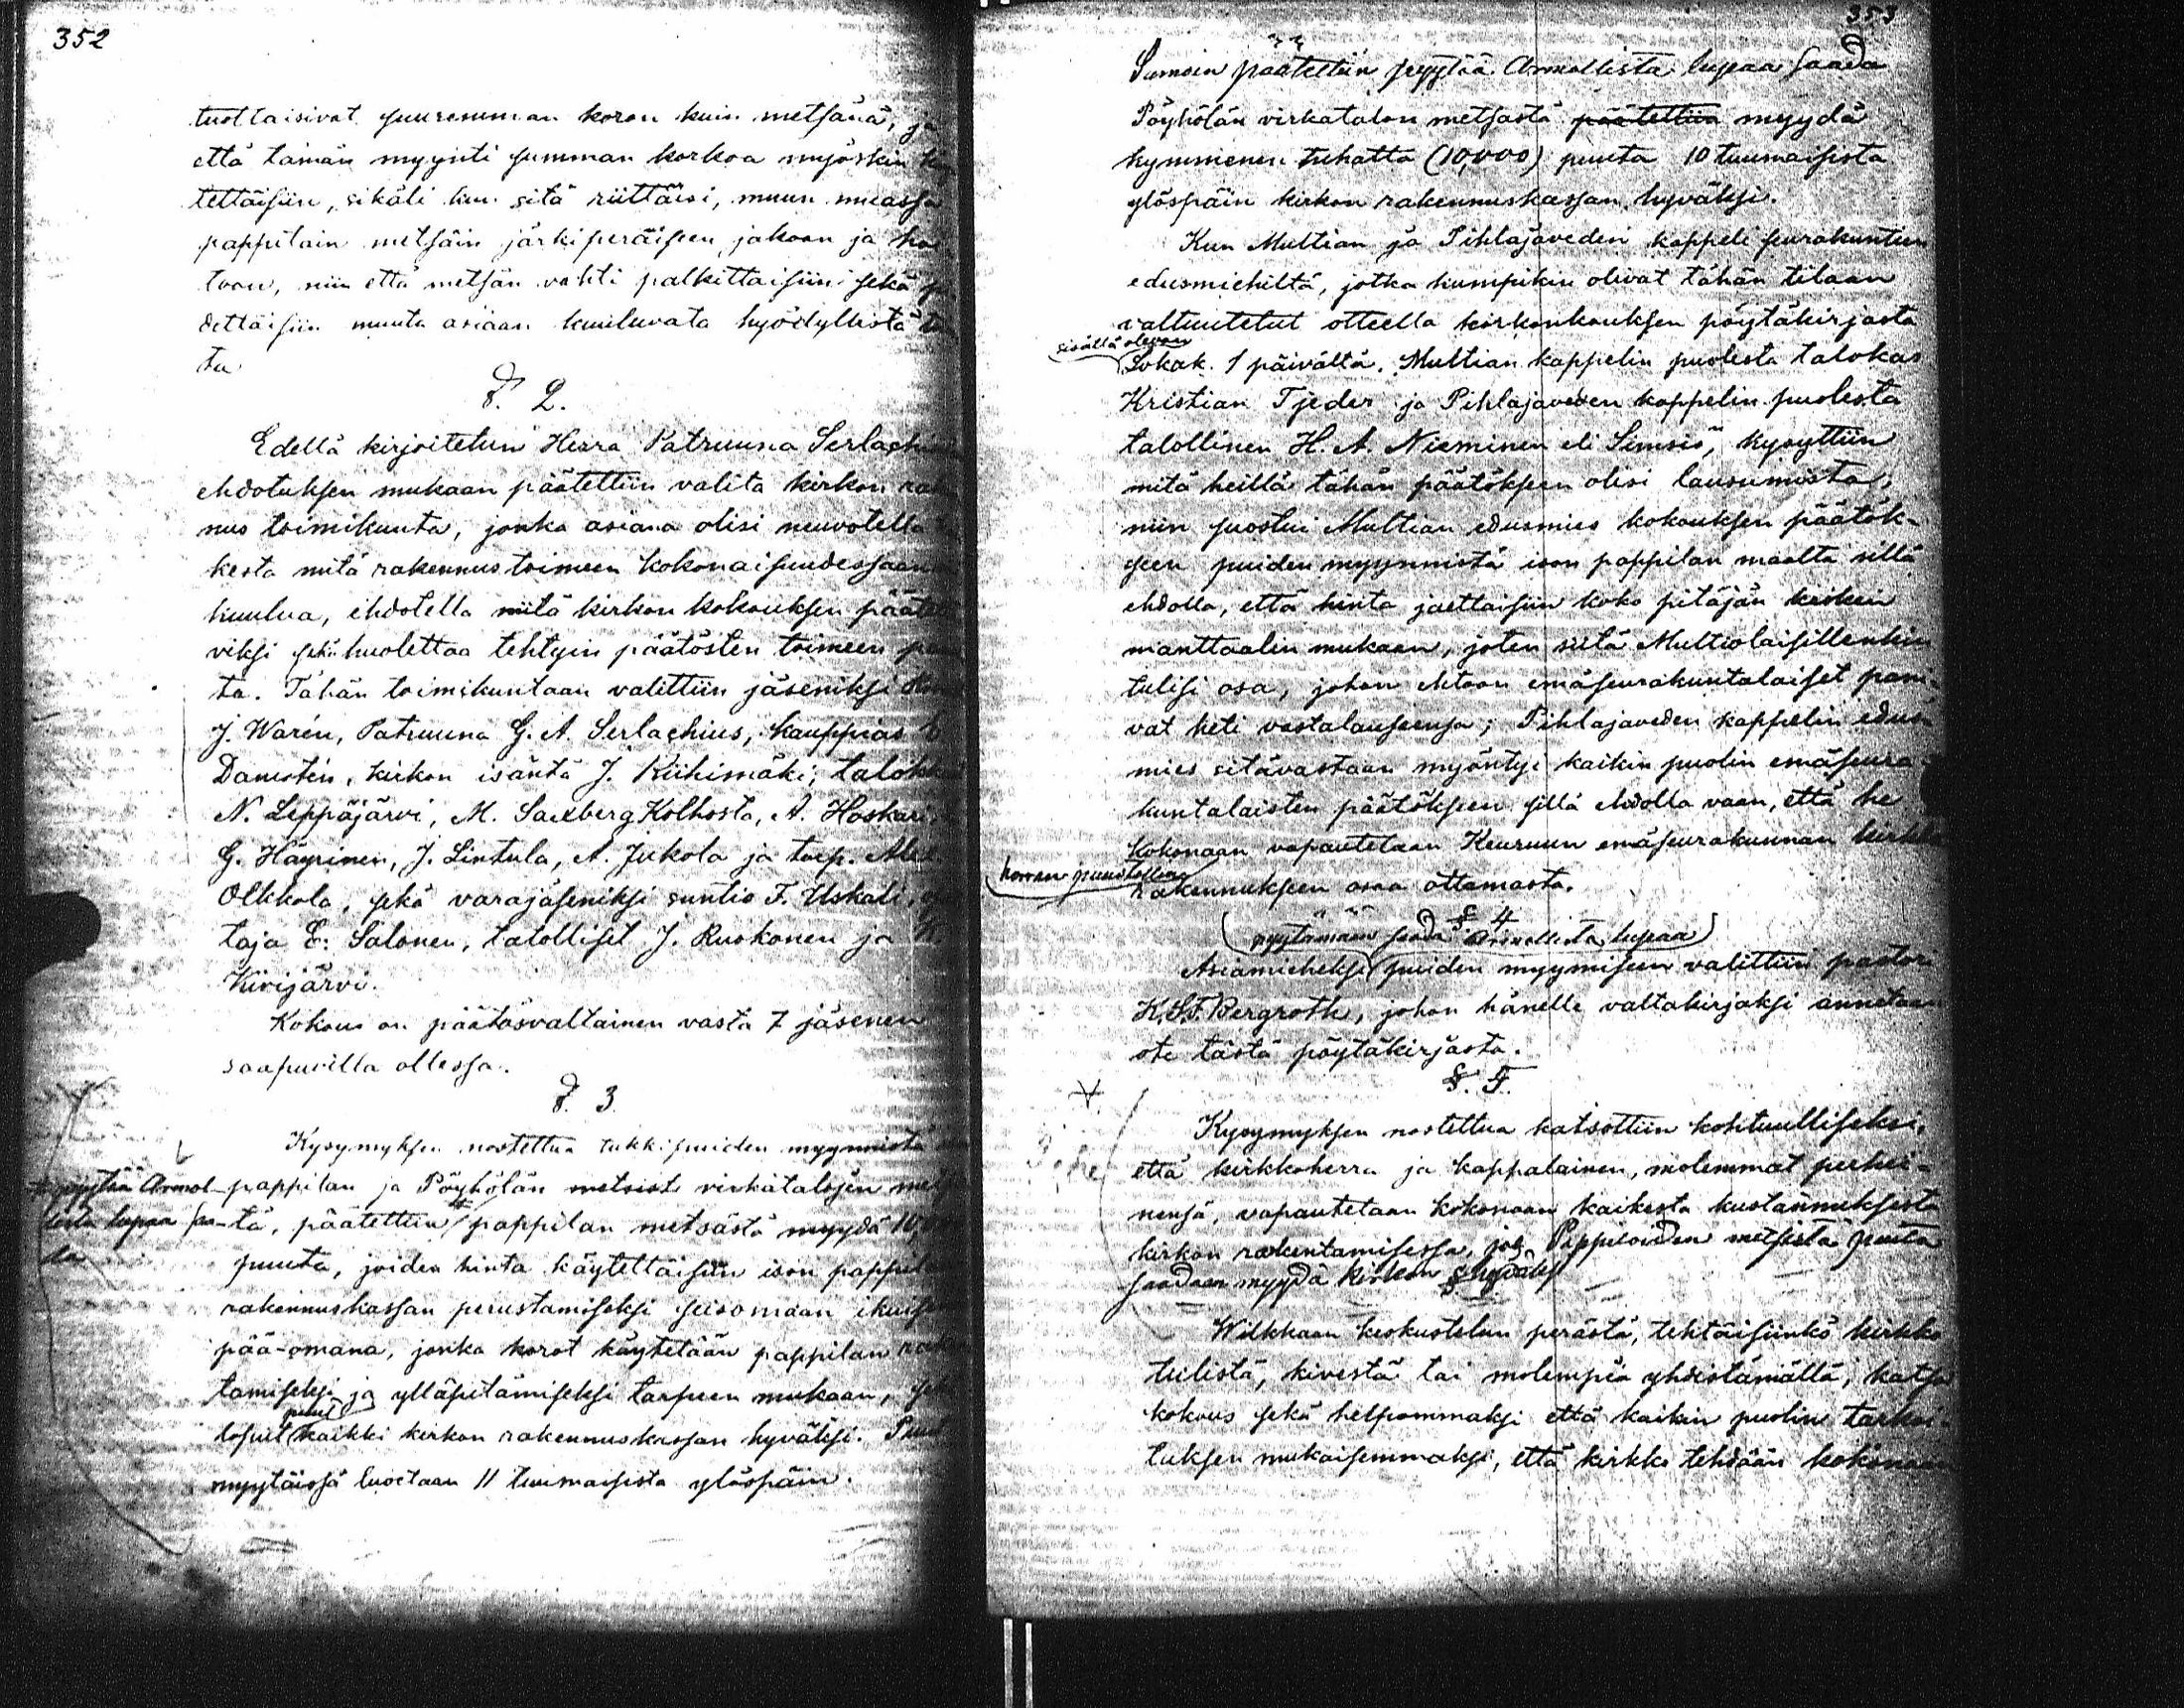 352
tuottaisivat suuremman koron kuin metsänä, ja
että tämän myynti summan korkoa myöskin
tettäisiin, sikäli kun sitä riittäisi, muun muassa
pappilain metsäin järkiperäiseen jakoon ja
toon, niin että metsän vahti palkittaisiin sekä
dettäisiin muuta asiaan kuuluvata hyödyllistä
ta
§. 2.
Edellä kirjoitetun Herra Patruuna Serlachi
ehdotuksen mukaan päätettiin valita kirkon ra
nus toimikunta, jonka asiana olisi neuvotella
kesta mitä rakennus toimeen kokonaisuudessaan
kuulua, ehdotella niitä kirkon kokouksen päätet
viksi sekä huolettaa tehtyin päätösten toimeen pa
ta. Tähän toimikuntaan valittiin jäseniksi
J. Warén, Patruuna G. A. Serlachius, kauppias
Damstén, kirkon isäntä J. Riihimäki, talokk
N. Leppäjärvi, M. Saxberg Kolhosta, A. Hoskari,
G. Häyrinen, J. Lintula, A. Jukola ja torp. Alex
Olkkola, sekä varajäseniksi suntio F. Uskali,
taja E. Salonen, talolliset J. Ruokonen ja
Kivijärvi.
Kokous on päätösvaltainen vasta 7 jäsenen
saapuvilla ollessa.
§. 3
Kysymyksen nostettua tukkipuiden myynnistä
pyytää Armol- pappilan ja Pöyhölän metsist virkatalojen met
lista lupaa saa- tä, päätettiin pappilan metsästä myydä
da
puuta, joiden hinta käytettäisiin ison pappil
rakennuskassan perustamiseksi seisomaan ikuise
pää-omana, jonka korot käytetään pappilan rak
tamiseksi ja ylläpitämiseksi tarpeen mukaan,
puut
loput kaikki kirkon rakennuskassan hyväksi. Puut
myytäissä luetaan 11 tuumaisista ylöspäin.
353
Samoin päätettiin pyytää Armollista lupaa saada
Pöyhölän virkatalon metsästä päätettiin myydä
kymmenen tuhatta (10,000) puuta 10 tuumaisista
ylöspäin kirkon rakennuskassan hyväksi.
Kun Multian ja Pihlajaveden kappeli seurakuntien
edusmiehiltä, jotka kumpikin olivat tähän tilaan
valtuutetut otteella kirkonkouksen pöytäkirjasta
sisällä olevan
Lokak. 1 päivältä. Multian kappelin puolesta talokas
Kristian Tjeder ja Pihlajaveden kappelin puolesta
talollinen H. A. Nieminen eli Simsiö, kysyttiin
mitä heillä tähän päätökseen olisi lausumista,
niin suostui Multian edusmies kokouksen päätök-
seen puiden myynnistä ison pappilan maalta sillä
ehdolla, että hinta jaettaisiin koko pitäjän kesken
manttaalin mukaan, joten siitä Multiolaisillenkin
tulisi osa, johon ehtoon emäseurakuntalaiset pani-
vat heti vastalauseensa; Pihlajaveden kappelin edus
mies sitävastaan myöntyi kaikin puolin emäseura
kuntalaisten päätökseen sillä ehdolla vaan, että he
kokonaan vapautetaan Keuruun emäseurakunnan kirkko
rakennukseen osaa ottamasta.
§ 4
(pyytämään saada Armollista lupaa)
Asiamieheksi puiden myymiseen valittiin pastori
K. S. F. Bergroth, johon hänelle valtakirjaksi annetaan
ote tästä pöytäkirjasta.
§. 5.
Kysymyksen nostettua katsottiin kohtuulliseksi,
että kirkkoherra ja kappalainen, molemmat perhei-
nensä, vapautetaan kokonaan kaikesta kustannuksista
kirkon rakentamisessa, jos Pappiloiden metsistä puita
saadaan myydä kirkon hyväksi
Wilkkaan keskustelun perästä, tehtäisiinkö kirkko
tiilistä, kivestä tai molempia yhdistämällä, katsoi
kokous sekä helpommaksi että kaikin puolin tarkoi
tuksen mukaisemmaksi, että kirkko tehdään kokonaan